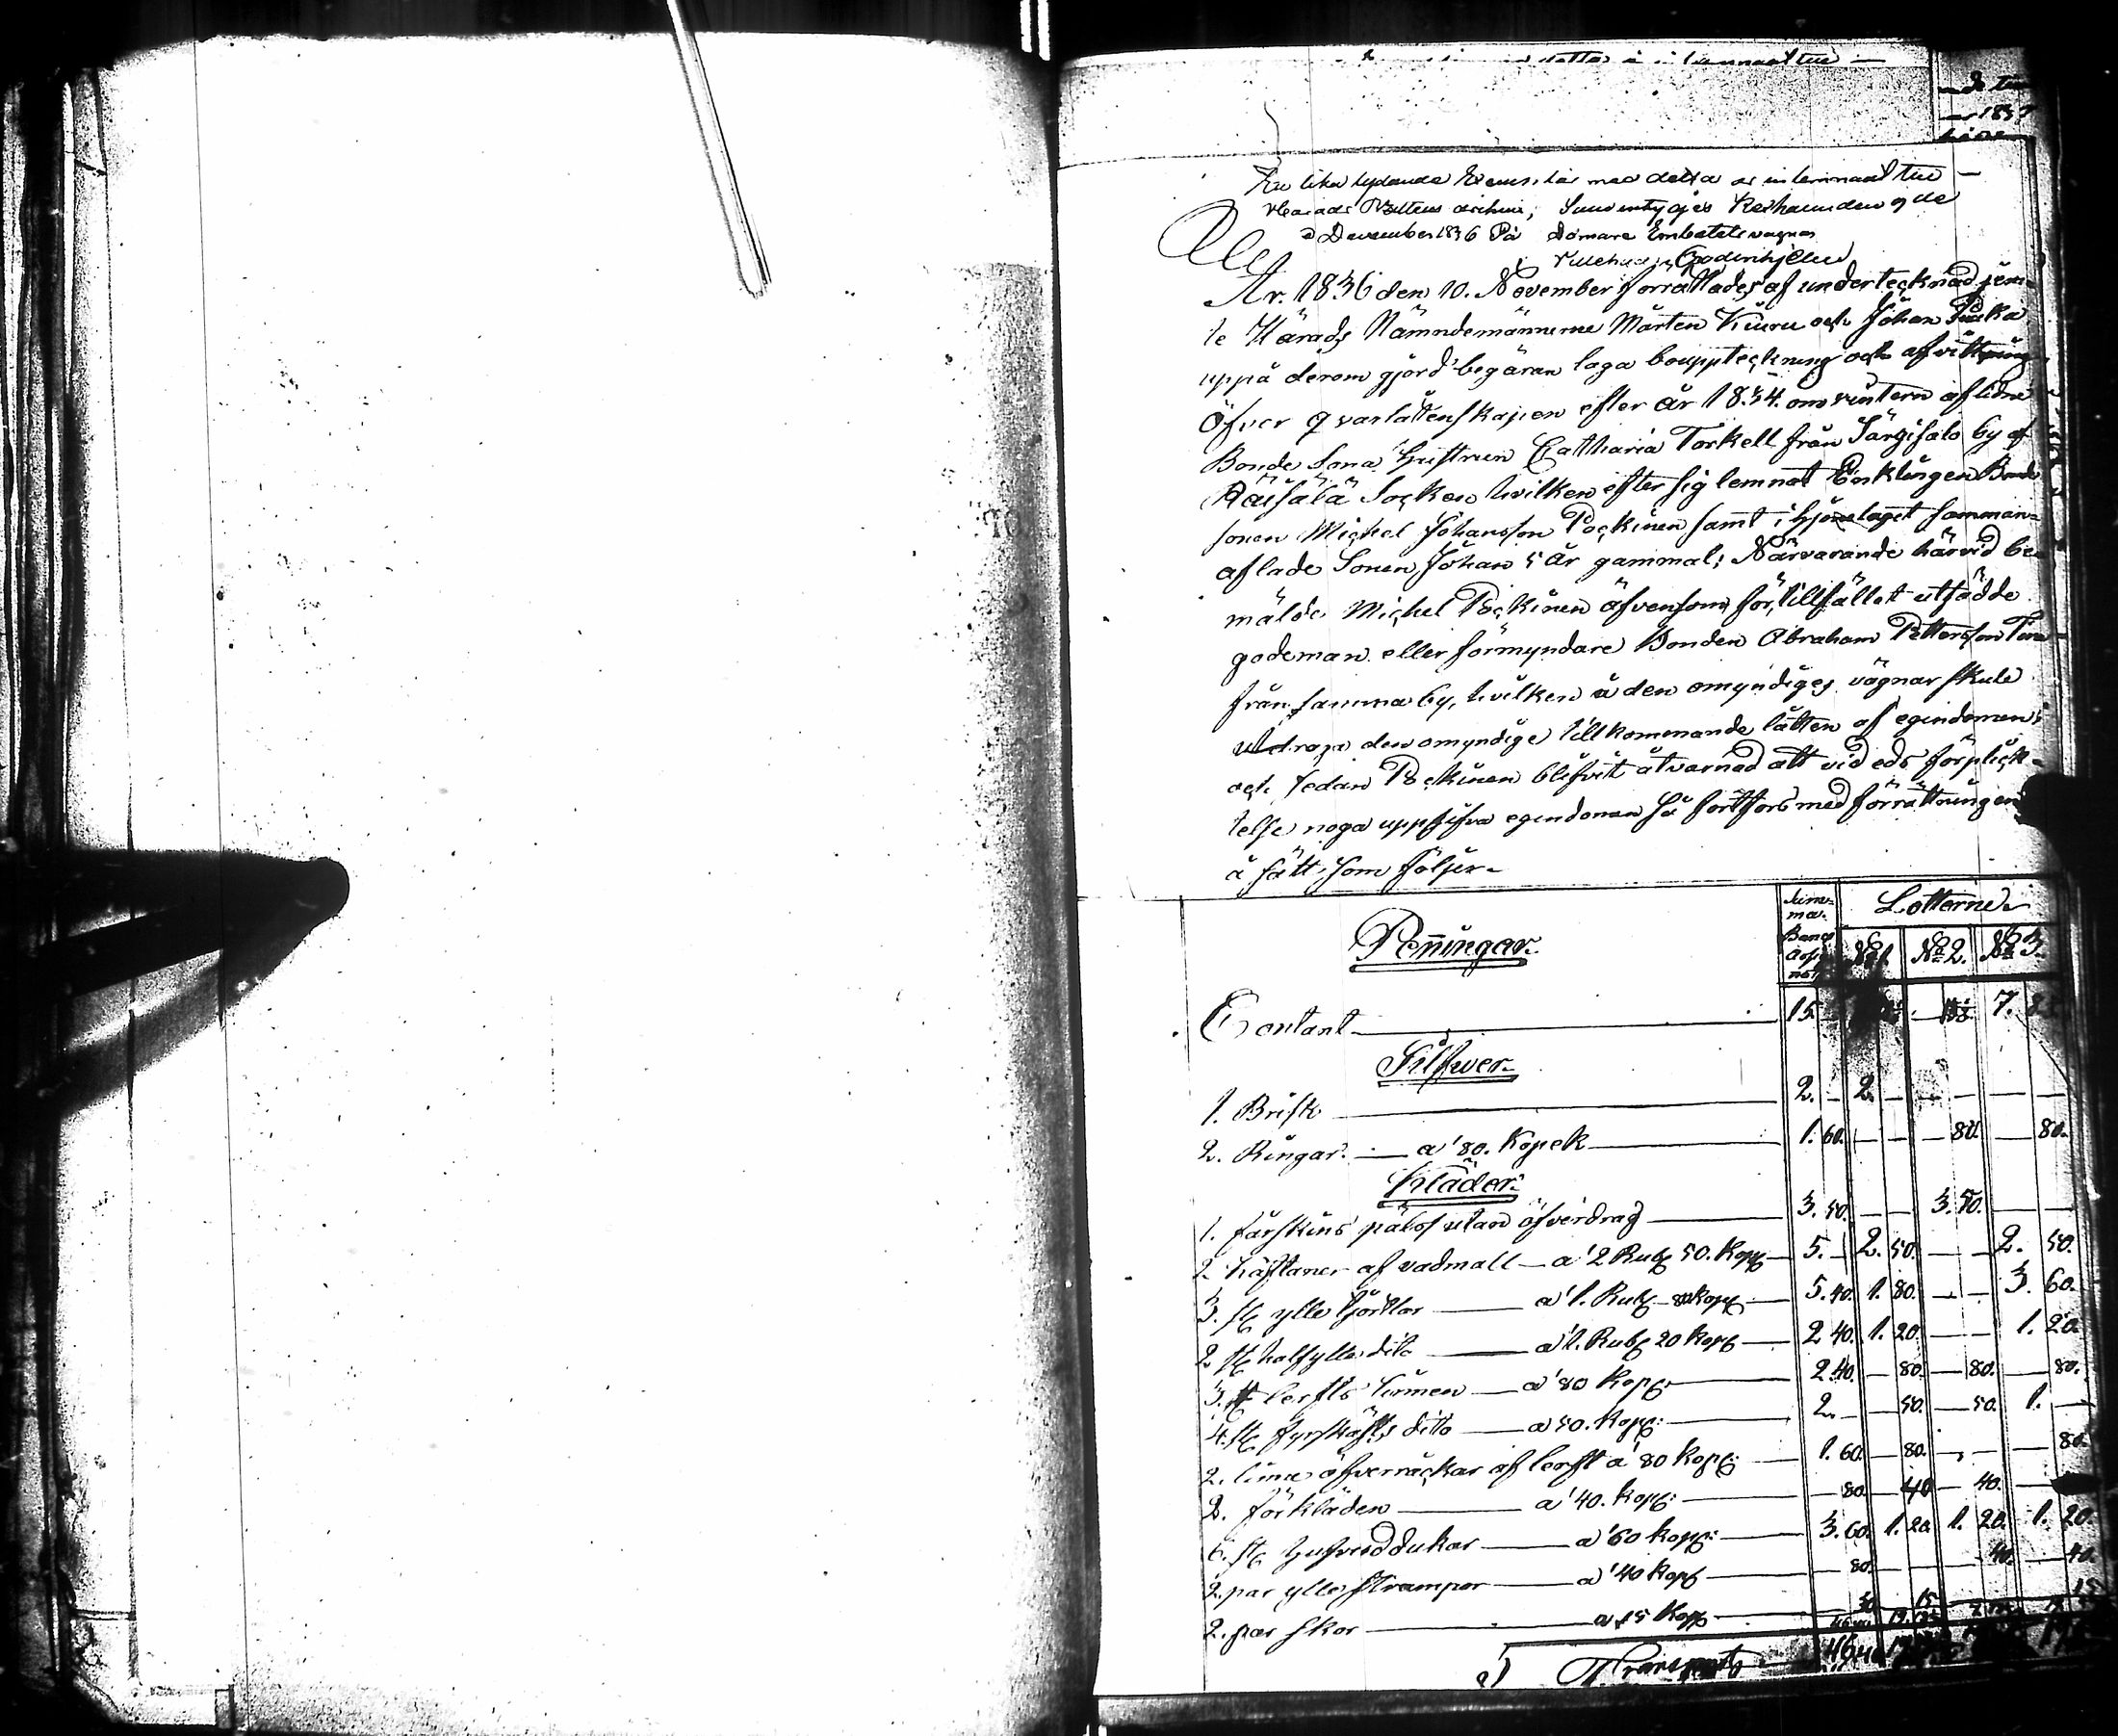 En lika lydande Exemplar med detta är inlemnadt till
Härads Rättens archiv,
December 1836 På Domare Embetets vägnar
Godenhjelm
År 1836 den 10. November förrättades af undertecknad jem-
te Härads Nämndemännerne Mårten Kiuru och Johan Pukka
uppå derom gjord begäran laga bouppteckning och afvittring
öfver qvarlåtenskapen efter år 1834. om vintern aflidne
Bonde Sona Hustrun Catharia Torkell från Särgisalo by af
Räisälä Socken hvilken efter sig lemnat Enklingen Bonde
sonen Michel Johansson Pockinen samt i hjonelaget samman-
aflade Sonen Johan 5 år gammal; Närvarande härvid be-
mälde Michel Pockinen äfvensom för tillfället utsädde
godeman eller förmyndare Bonden Abraham Pettersson
från samma by, hvilken å den omyndiges vägnar skule
utdraga den omyndige tillkommande lätten af egindomen;
och sedan Pockinen blifvit åtvarnad att vid eds förplick-
telse noga uppgifva egendomen så fortfors med förrättningen
å sätt som följer
Summa Banco Assignat. Lotterne
Penningar. No 1. No 2. No 3.
Contant 15 7.
Silfwer
1. Brisk 2. 2.
2. Ringar a' 80. Kopek 1. 60. 80. 80.
Kläder
1. fårskins päls utan öfverdrag 3. 50. 3. 50.
2. Kaftaner af vadmall a' 2 Rub 50. Kop 5. 2. 50. 2. 50.
3. st ylle Kjortlar a' 1. Rub 80 Kop 5. 40. 1. 80. 3. 60.
2 st halfylle dito a' 1. Rub 20 Kop 2 40. 1. 20. 1. 20.
3. st lerfts linnen a' 80 Kop 2 40. 80. 80. 80.
4. st fyrskafts ditto a 50. Kop: 2. 50. 50. 1.
2. lina öfverräckar af lerft a' 80 Kop: 1. 60. 80. 80.
2. förkläden a' 40. Kop: 80. 40 40.
6. st hufvuddukar a' 60 Kop: 3. 60. 1. 20. 1. 20. 1. 20.
2. par ylle strumpor a' 40 Kop 80. 40. 40.
2. par skor a 15 Kop 30 15 15
Transport 46 40